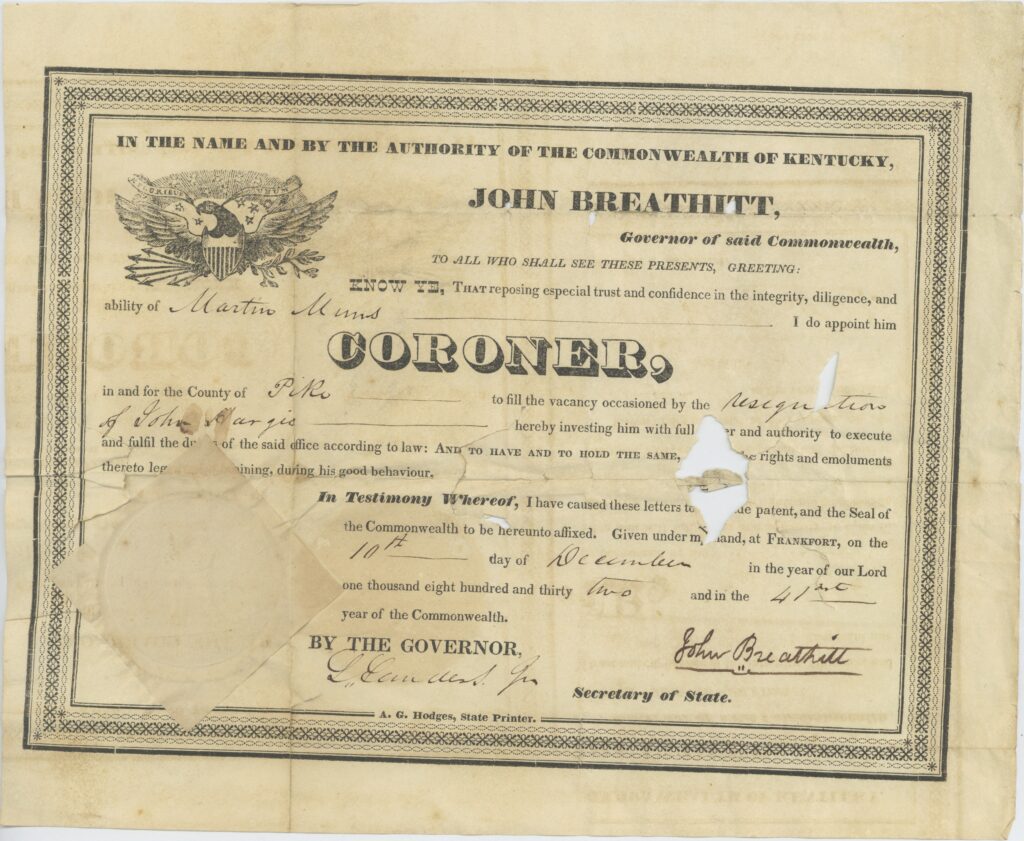 IN THE NAME AND BY THE AUTHORITY OF THE COMMONWEALTH OF KENTUCKY,
JOHN BREATHITT,
Governor of said Commonwealth,
TO ALL WHO SHALL SEE THESE PRESENTS, GREETING:
KNOW YE, THAT reposing especial trust and confidence in the integrity, diligence, and
ability of Martin Mims I do appoint him
CORONER,
in and for the County of Pike to fill the vacancy occasioned by the resignation
of John Hargis hereby investing him with full er and authority to execute
and fulfil the du of the said office according to law: AND TO HAVE AND TO HOLD THE SAME, rights and emoluments
thereto leg ining, during his good behaviour.
In Testimony Whereof, I have caused these letters to de patent, and the Seal of
the Commonwealth to be hereunto affixed. Given under my hand, at FRANKFORT, on the
10th day of December in the year of our Lord
one thousand eight hundred and thirty two and in the 41st
year of the Commonwealth.
John Breathitt
BY THE GOVERNOR,
L Sanders Jr
Secretary of State.
A. G. Hodges, State Printer.